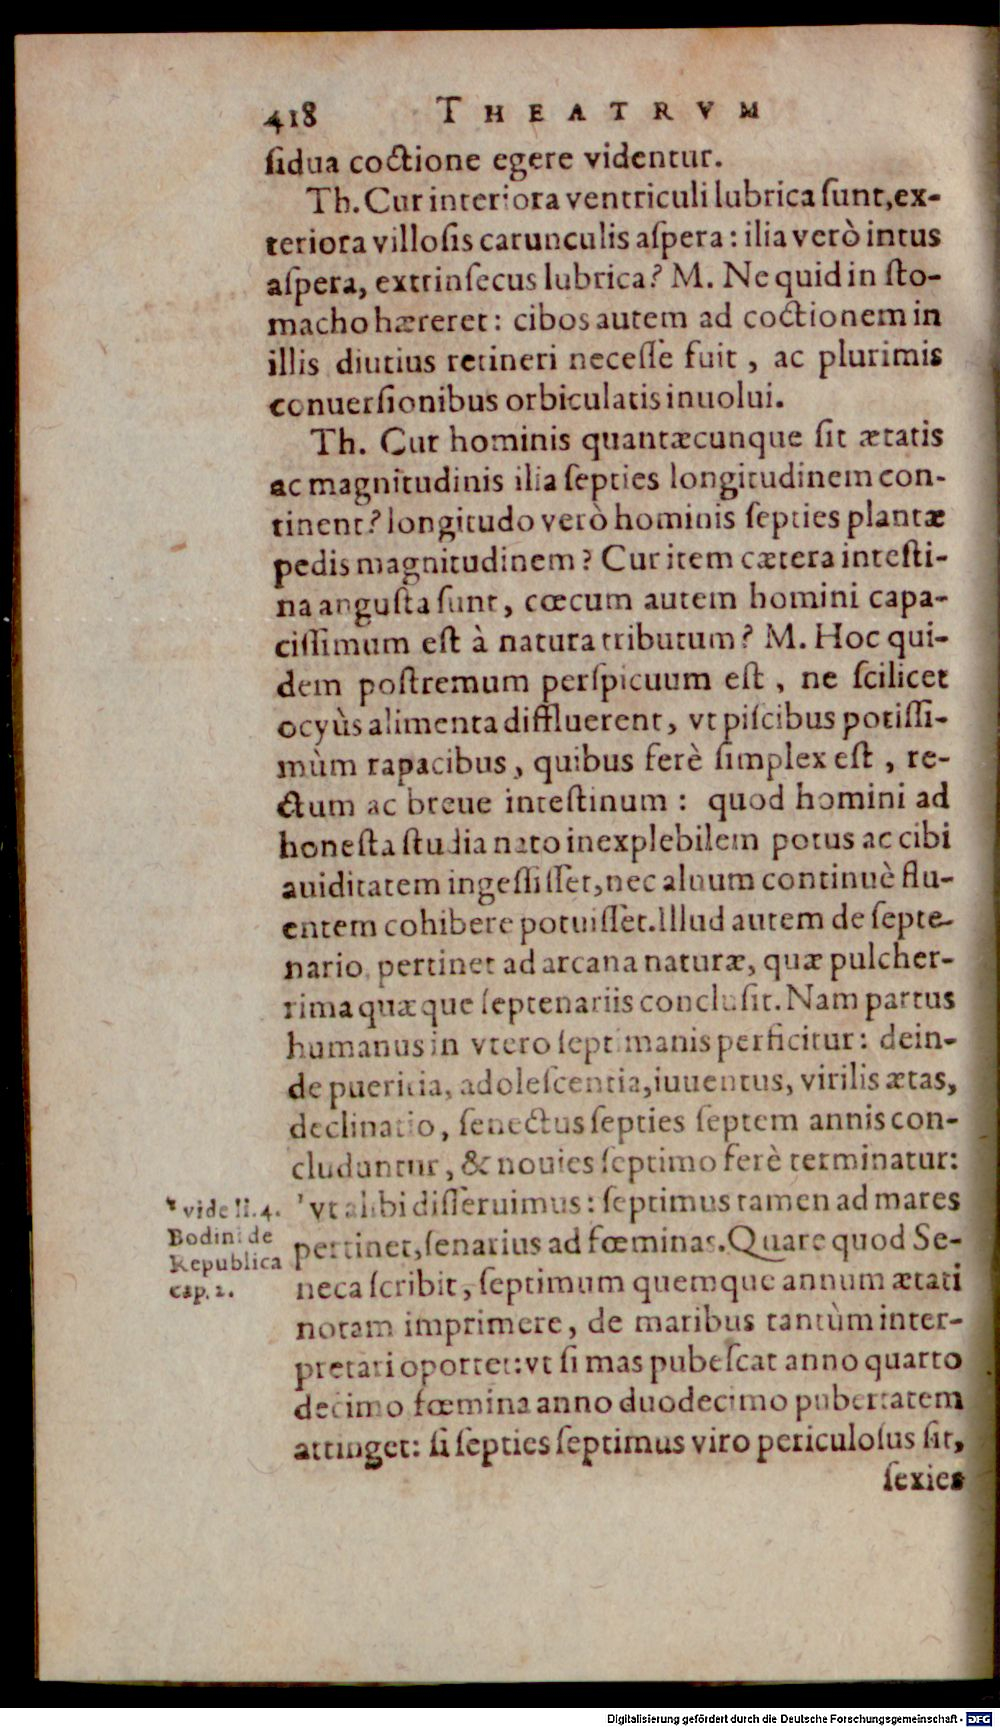 418 THEATRVM
ſidua coctione egere videntur.
Th. Cur interiora ventriculi lubrica ſunt, ex-
teriora villoſis carunculis aſpera: ilia verò intus
aſpera, extrinſecus lubrica? M. Ne quid in ſto-
macho hæreret: cibos autem ad coctionem in
illis diutius retineri neceſſe fuit, ac plurimis
conuerſionibus orbiculatis inuolui.
Th. Cur hominis quantæcunque ſit ætatis
ac magnitudinis ilia ſepties longitudinem con-
tinent? longitudo verò hominis ſepties plantæ
pedis magnitudinem? Cur item cætera inteſti-
na anguſta ſunt, cœcum autem homini capa-
ciſſimum eſt à natura tributum? M. Hoc qui-
dem poſtremum perſpicuum eſt, ne ſcilicet
ocyùs alimenta diffluerent, vt piſcibus potiſſi-
mùm rapacibus, quibus ferè ſimplex eſt, re-
ctum ac breue inteſtinum: quod homini ad
honeſta ſtudia nato inexplebilem potus ac cibi
auiditatem ingeſſiſſet, nec aluum continuè flu-
entem cohibere potuiſſet. Illud autem de ſepte-
nario pertinet ad arcana naturæ, quæ pulcher-
rima quæque ſeptenariis concluſit. Nam partus
humanus in vtero ſeptimanis perficitur: dein-
de pueritia, adoleſcentia, iuuentus, virilis ætas,
declinatio, ſenectus ſepties ſeptem annis con-
cluduntur, & nouies ſeptimo ferè terminatur:
vt alibi diſſeruimus: ſeptimus tamen ad mares
pertinet, ſenarius ad fœminas. Quare quod Se-
neca ſcribit, ſeptimum quemque annum ætati
notam imprimere, de maribus tantùm inter-
pretari oportet: vt ſi mas pubeſcat anno quarto
decimo fœmina anno duodecimo pubertatem
attinget: ſi ſepties ſeptimus viro periculoſus ſit,
ſexies
vide li. 4.
Bodini de
Republica
cap. 2.
Digitalisierung gefördert durch die Deutsche Forschungsgemeinschaft - DFG